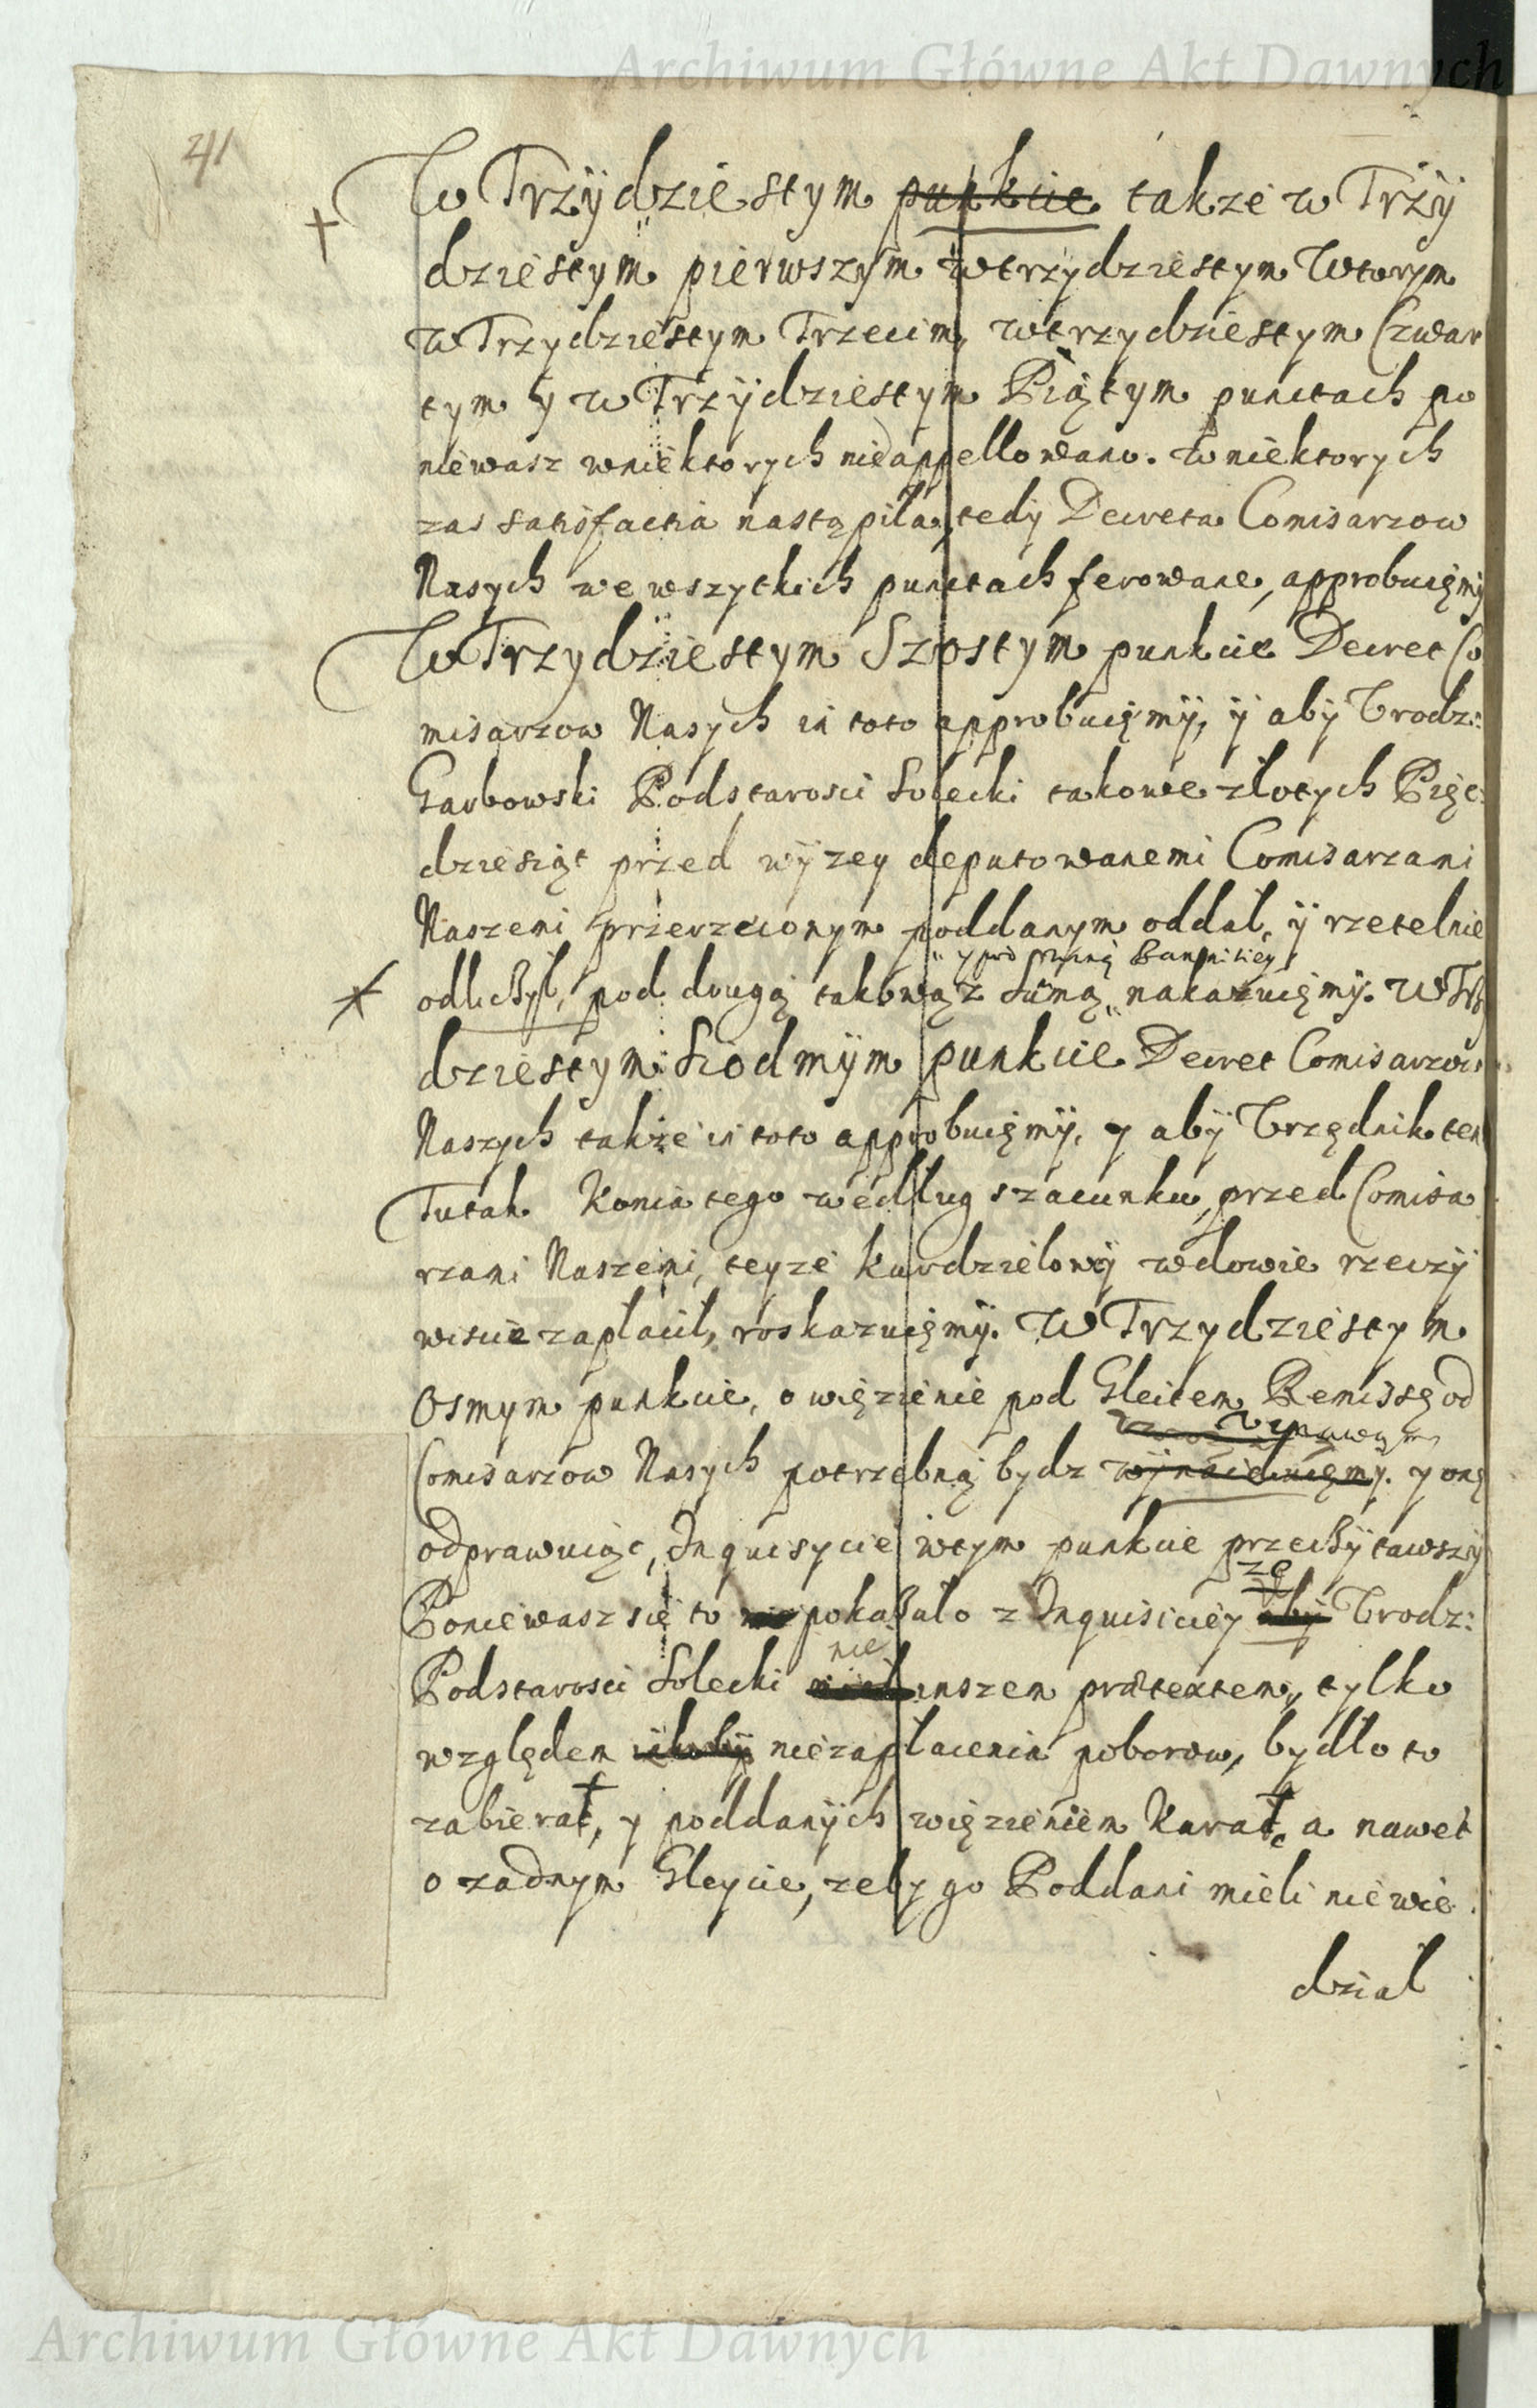 Archiwum Główne Akt Dawnych
41
W Trzÿdziestym punkcie takze w Trzÿ
dziestym pierwszÿm w trzydziestym Wtorym
w Trzydziestym Trzecim, w trzydziestym Czwar
tym y w Trzÿdziestym Piątym punctach po
niewasz w niektorych nie appellowano. w niektorych
zas satisfactia nastąpila, tedÿ Decreta Comisarzow
Nasych we wszytkich punctach ferowane, approbuięmÿ
W Trzydziestym Szostym punkcie Decret Co
misarzow Nasych in toto approbuięmÿ, ÿ abÿ Vrodz:
Garbowski Podstarosci Solecki takowe złotych Pięc
dziesiąt przed wÿzey deputowanemi Comisarzami
Naszemi przerzeconym poddanym oddal, ÿ rzetelnie
y pod winą Bannitiey
odliczÿl, pod drugą takową z Sumą nakazuięmÿ. W Trzÿ
dziestym Siodmÿm punkcie Decret Comisarzow
Naszych takze in toto approbuięmÿ, y abÿ Vrzędnik ten
Tutak Konia tego według szacunku, przed Comisa
rzami Naszemi, teyze Kurdzielowÿ wdowie rzeczÿ
wiscie zaplacil, roskazuięmÿ. W Trzydziestym
Osmym punkcie, o więzienie pod Gleitem Remissę od
Comisarzow Nasych potrzebną bydz wÿnaiduięmÿ. y onę
odprawuiąc, Inquisycie w tym punkcie przeczÿtawszÿ
ze
Poniewasz sie to pokazalo z Inquisiciey abÿ Vrodz:
nie
Podstarosci Solecki inszem prætextem, tylko
względem niezaplacenia poborow, bydło to
zabierał, y poddanÿch więzieniem Karał, a nawet
o zadnym Gleycie, zeby go Poddani mieli niewie
dzial
Archiwum Główne Akt Dawnych